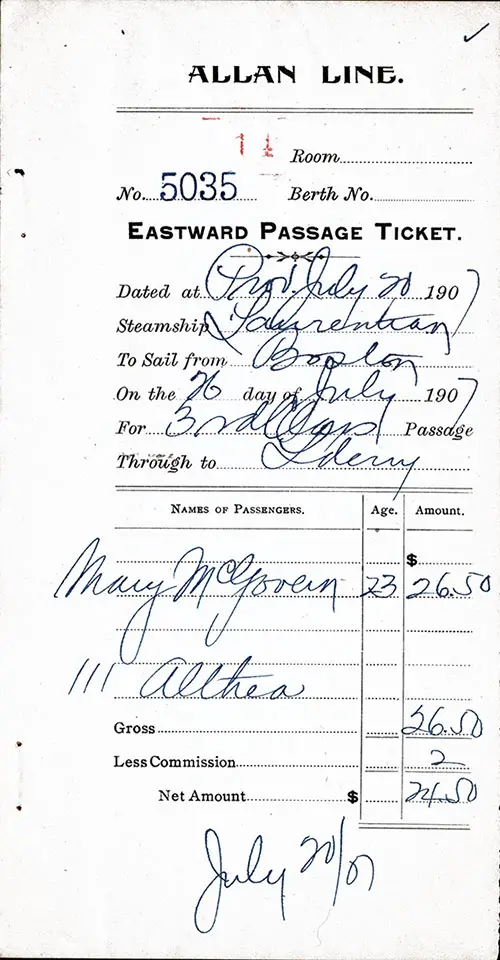 ALLAN LINE.
Room
No. 5035 Berth No.
EASTWARD PASSAGE TICKET.
Dated at Prov. July 20 1907
Steamship Laurentian
To Sail from Boston
On the 26 day of July 1907
For 3rd Class Passage
Through to Lderry
NAMES OF PASSENGERS. Age. Amount.
$
Mary McGovern 23 26.50
111 Althea
Gross 26.50
Less Commission 2
Net Amount $ 24.50
July 20/07